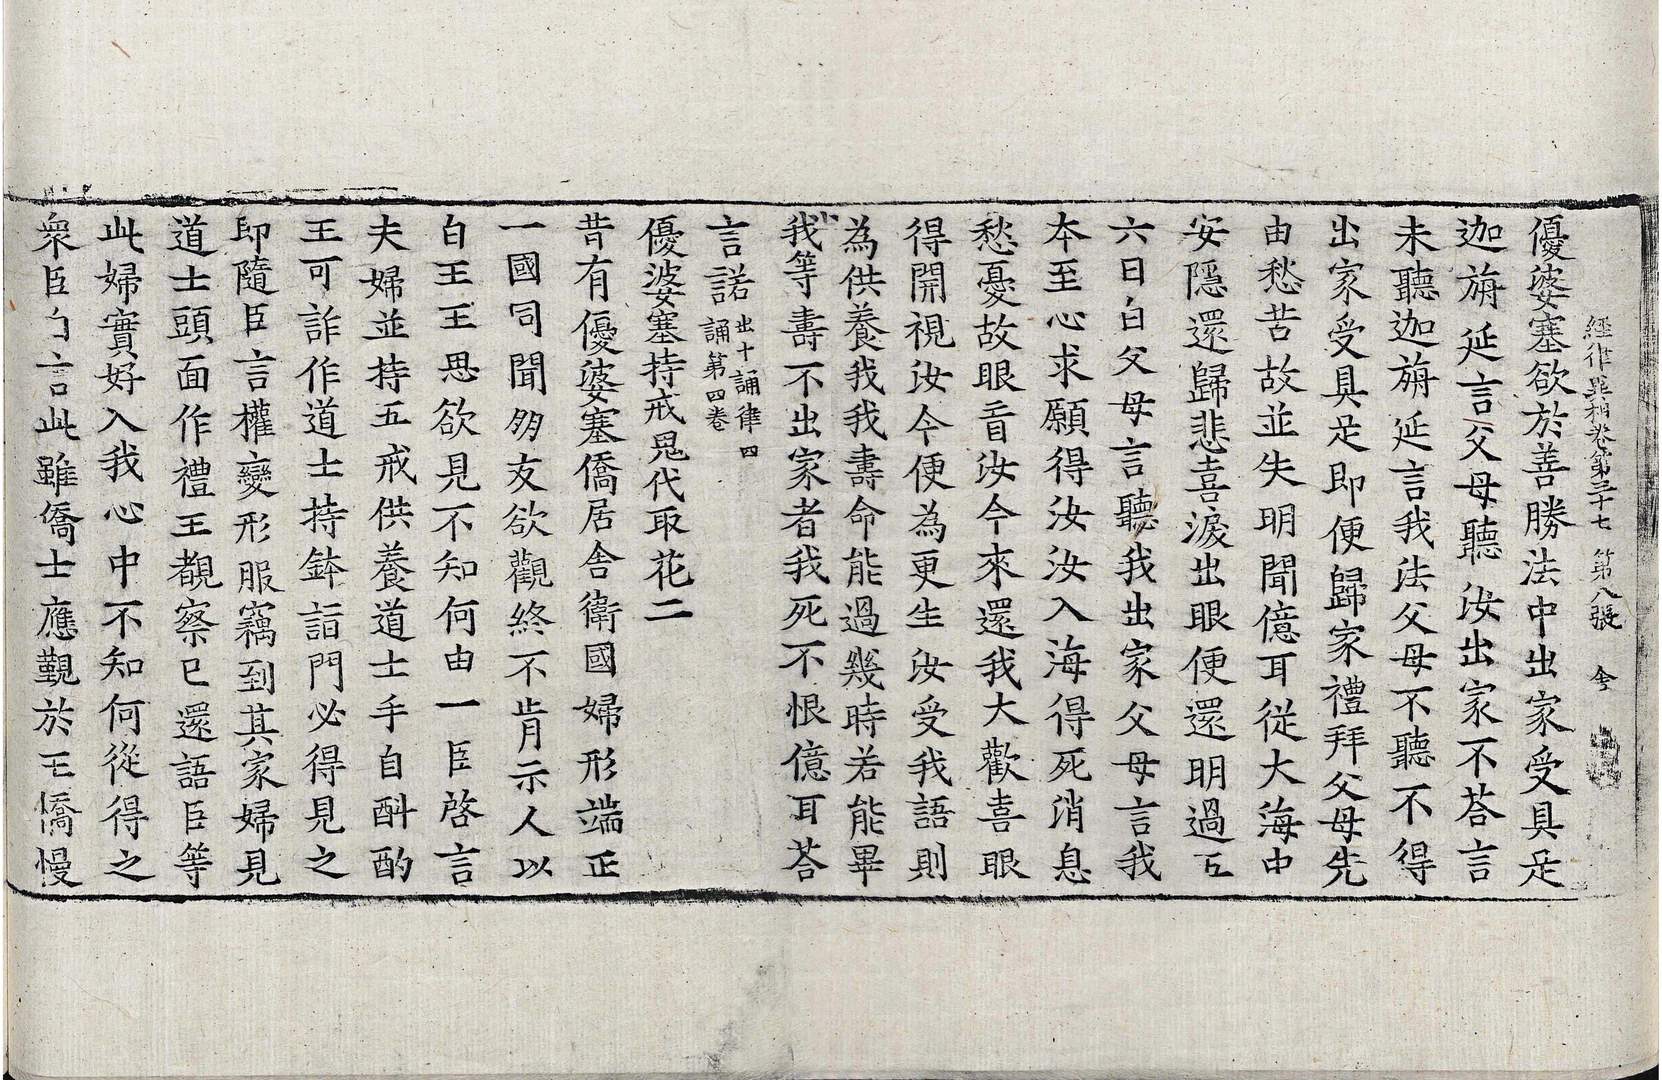 經律異相卷第三十七 第八張 兮
優婆塞欲於善勝法中出家受具足
迦旃延言父母聽汝出家不荅言
未聽迦旃延言我法父母不聽不得
出家受具足即便歸家禮拜父母先
由愁苦故並失明聞億耳從大海中
安隱還歸悲喜淚出眼便還明過五
六日白父母言聽我出家父母言我
本至心求願得汝汝入海得死消息
愁憂故眼盲汝今來還我大歡喜眼
得開視汝今便為更生汝受我語則
為供養我我壽命能過幾時若能畢
我等壽不出家者我死不恨億耳荅
言諾出十誦律四誦第四卷
優婆塞持戒鬼代取花二
昔有優婆塞僑居舍衛國婦形端正
一國同聞朋友欲觀終不肯示人以
白王王思欲見不知何由一臣啓言
夫婦並持五戒供養道士手自斟酌
王可詐作道士持鉢詣門必得見之
即隨臣言權變形服竊到其家婦見
道士頭面作禮王覩察已還語臣等
此婦實好入我心中不知何從得之
衆臣白言此雖僑士應覲於王僑慢